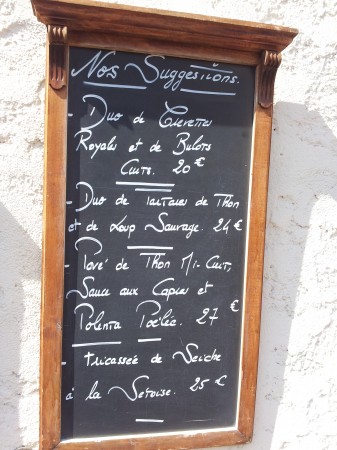 Nos Suggestions.
- Duo de Crevettes
Royales et de Bulots
Cuits. 20 €
- Duo de Tartares de Thon
et de Loup Sauvage. 24 €
- Pavé de Thon Mi-Cuit,
Sauce aux Capres et
Polenta Poêlée. 27 €
- Fricassée de Seiche
à la Sétoise. 25 €